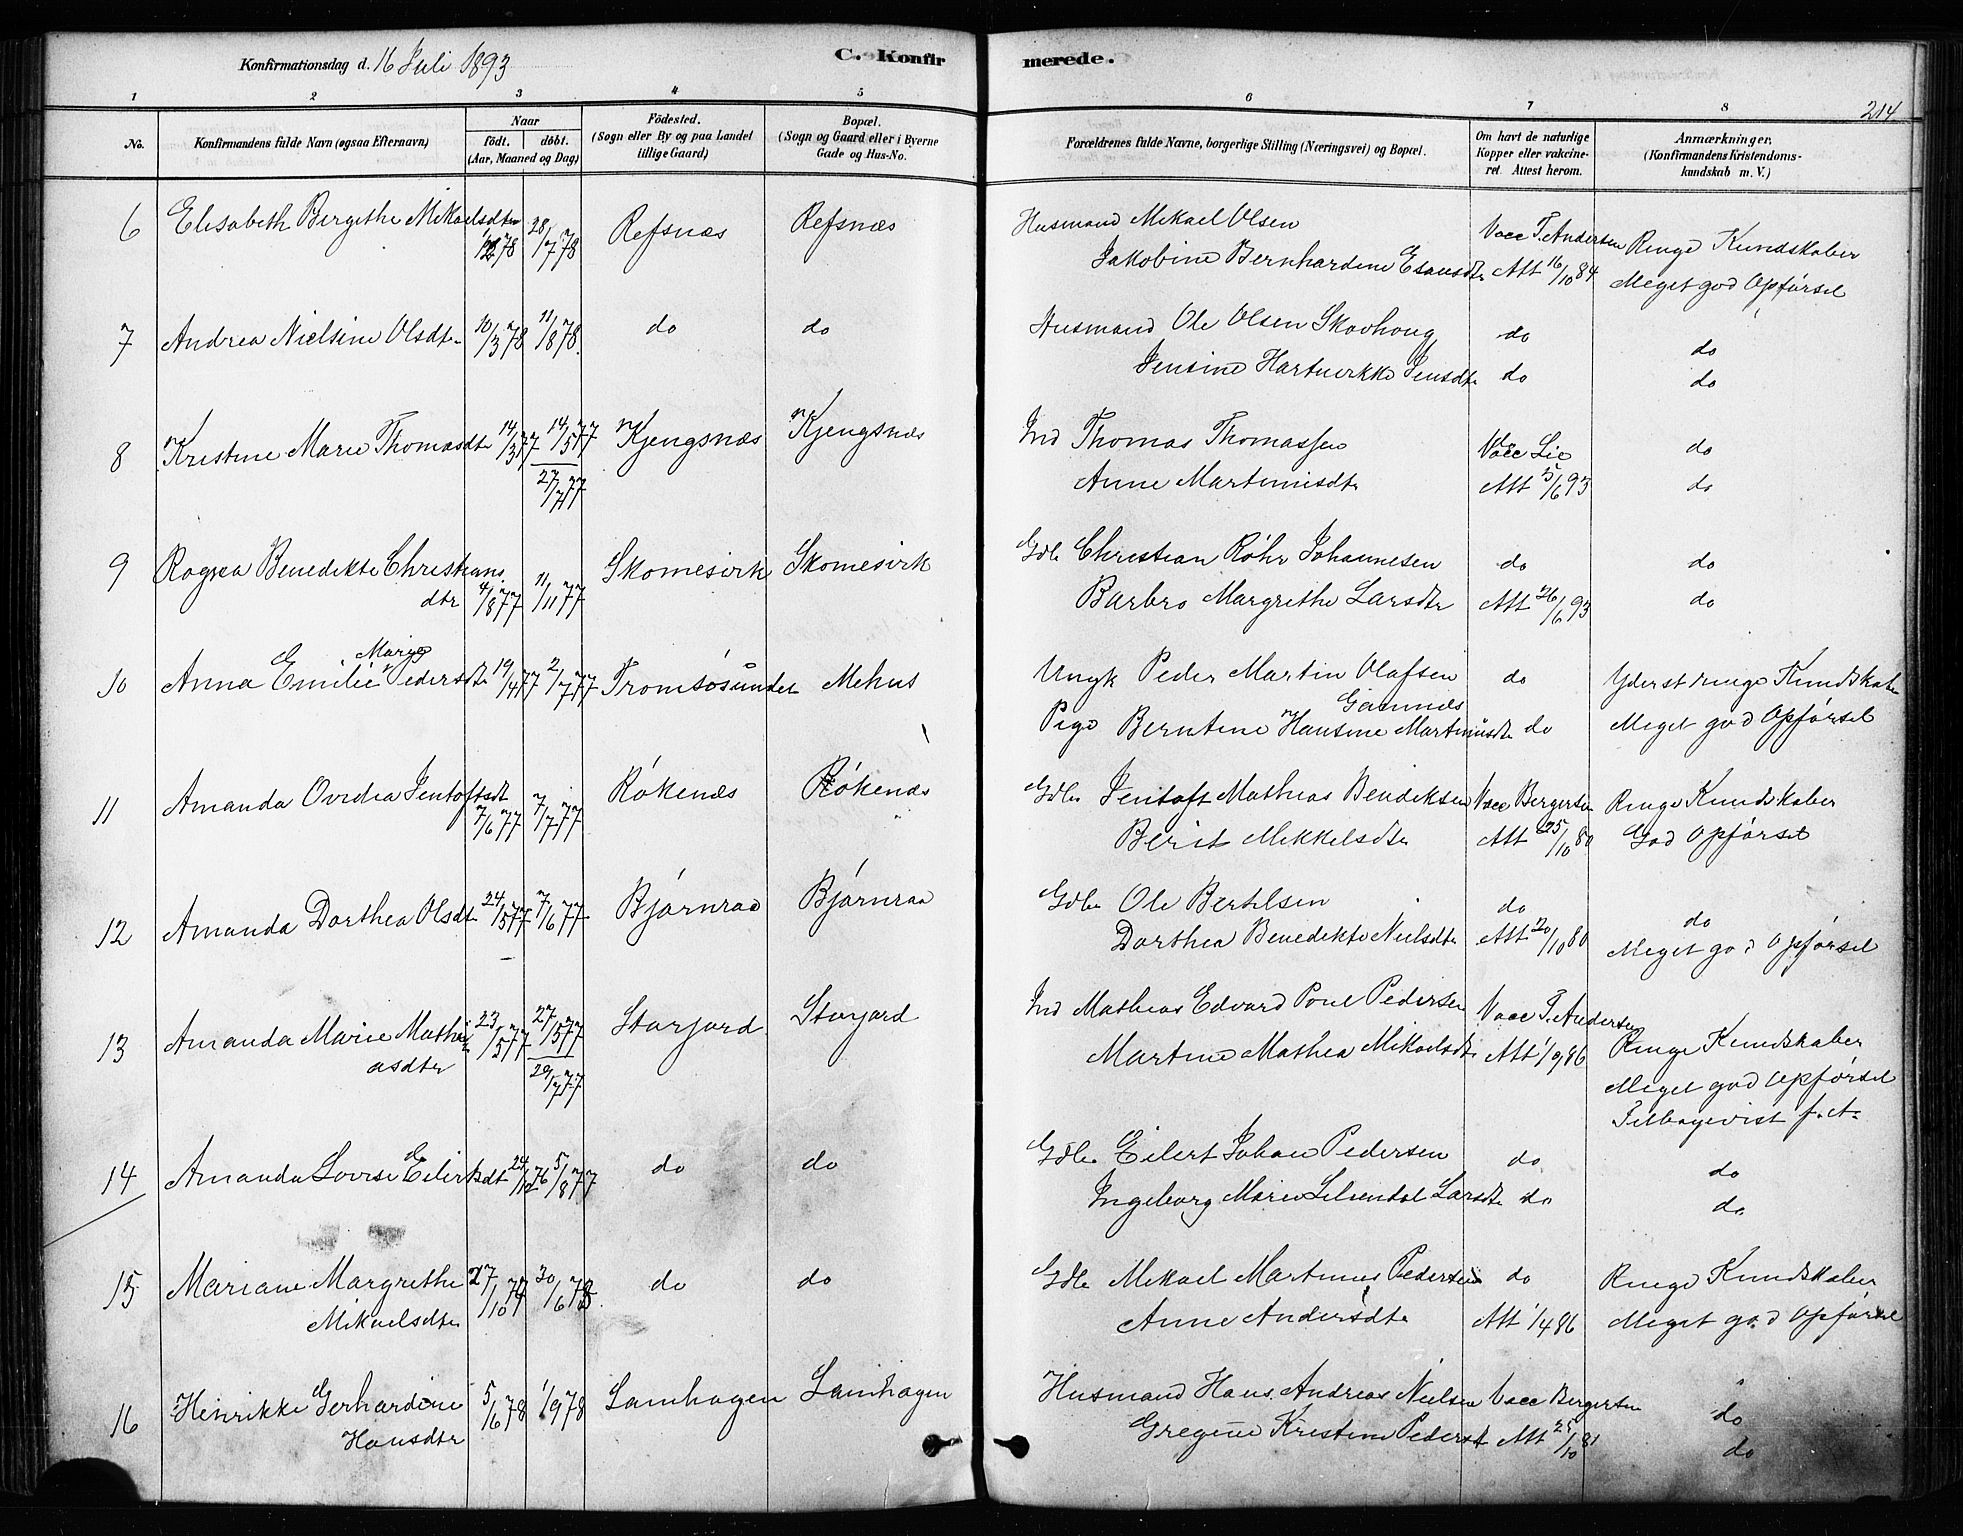 Konfirmationsdag d. 16 Juli 1893
C. Konfir
merede.
214
1 2 3 4 5 6 7 8
No.
Konfirmandens fulde Navn (ogsaa Efternavn)
Naar
födt. döbt.
(Aar, Maaned og Dag)
Födested.
(Sogn eller By og paa Landet
tillige Gaard)
Bopæl.
(Sogn og Gaard eller i Byerne
Gade og Hus-No.
Forældrenes fulde Navne, borgerlige Stilling (Næringsvei) og Bopæl.
Om havt de naturlige
Kopper eller vakcine-
ret Attest herom.
Anmærkninger.
(Konfirmandens Kristendoms-
kundskab m. V.)
6 Elisabeth Bergithe Mikaelsdtr 28/7 78 Refsnæs Refsnæs Husmand Mikael Olsen Vacc T. Andersen Ringe Kundskaber
Jakobine Bernhardine Esausdtr Att 16/10 84 Meget god Opførsel
7 Andrea Nielsine Olsdtr 10/3 78 11/8 78. do do Husmand Ole Olsen Skovhoug do do
Jensine Hartverkke Jensdtr do do
8 Kristine Marie Thomasdtr 14/3 77 14/5 77 Kjengsnæs Kjengsnæs Ind Thomas Thomassen Vacc Lie do
27/7 77 Anne Martinusdtr Att 5/6 93 do
9 Ragna Benedikte Christians 4/8 77 11/11 77 Skomesvik Skomesvik Gdb Christian Røhr Johannesen do do
dtr Barbro Margrethe Larsdtr Att 26/6 93 do
Marie
10 Anna Emilie Pedersdtr 19/4 77 2/7 77 Tromsøsundet Mehus Ungk Peder Martin Olafsen do Yderst ringe Kundskaber
Gamnæs
Pige Berntine Hansine Martinusdtr do Meget god Opførsel
11 Amanda Ovedia Jentoftsdt 7/6 77 7/7 77 Røkenæs Røkenæs Gdbr Jentoft Mathias Bendiksen Vacc Bergersen Ringe Kundskaber
Berit Mikkelsdtr Att 25/10 80 God Opførsel
12 Amanda Dorthea Olsdtr 24/5 77 7/6 77 Bjørnraa Bjørnraa Gdbr Ole Bertelsen do do
Dorthea Benedikte Nielsdtr Att 20/10 80 Meget god Opførsel
13 Amanda Marie Mathi 23/5 77 27/5 77 Storjord Storjord Ind Mathias Edvard Poul Pedersen Vacc T. Andersen
asdtr 29/7 77 Martine Mathea Mikaelsdtr Att 1/9 86 Ringe Kundskaber
Meget god Opførsel
Tilbagevist f. A.
14 Amanda Lovise Eilertsdt 24/12 76 5/8 77 do do Gdbr Eilert Johan Pedersen do do
Ingeborg Marie Liliendal Larsdtr do do
15 Mariane Margrethe 27/10 77 30/6 78 do do Gdbr Mikael Martinus Pedersen do Ringe Kundskaber
Mikaelsdtr Anne Andersdtr Att 1/4 86 Meget god Opførsel
16 Henrikke Gerhardine 5/6 78 1/9 78 Samhagen Samhagen Husmand Hans Andreas Nielsen Vacc Bergersen do
Hansdtr Gregine Kristine Pedersdt Att 25/10 81 do